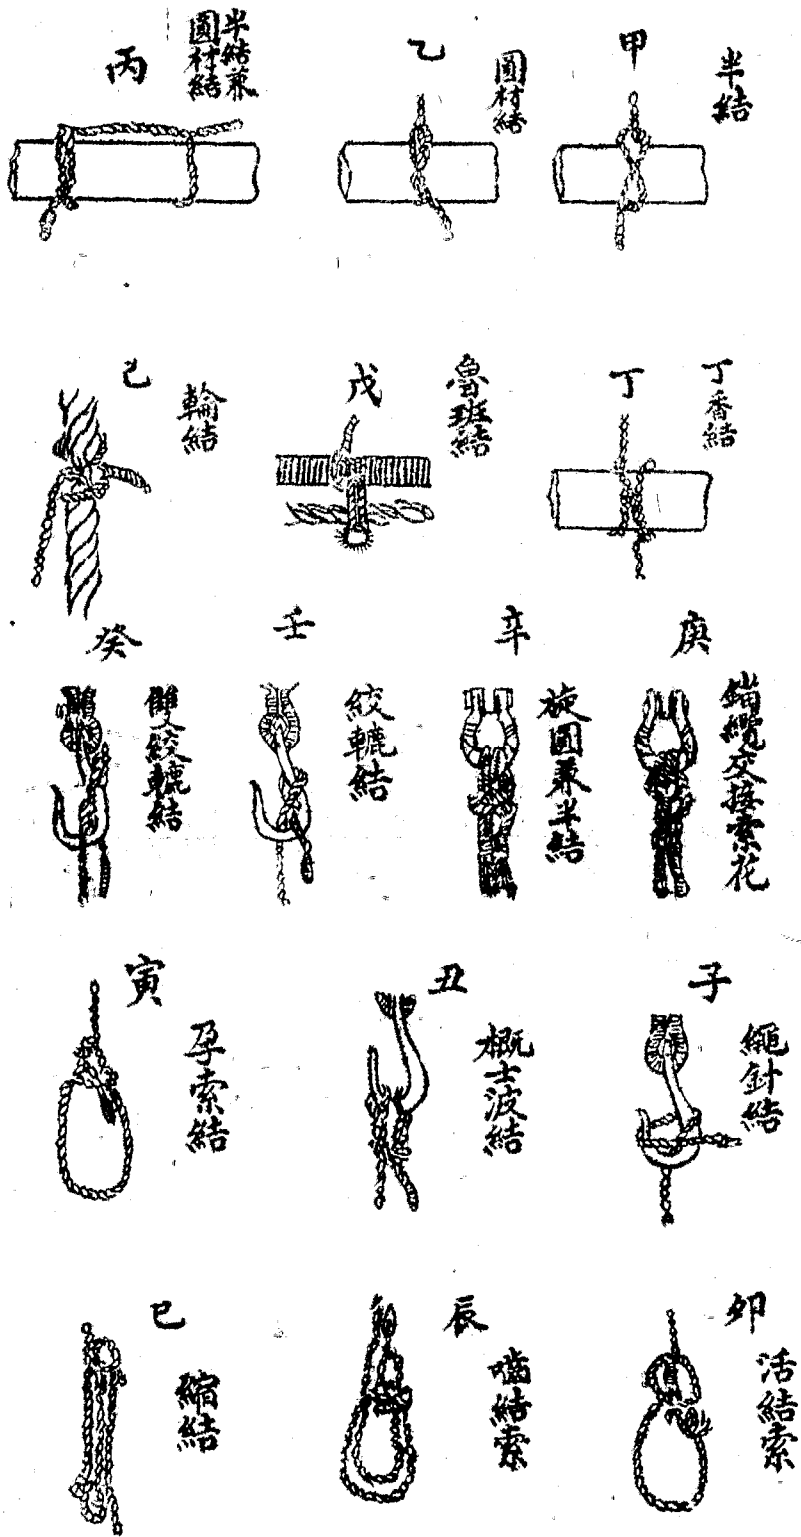 甲
半結
乙
圓材結
丙
半結兼
圓材結
丁
丁香結
戊
魯班結
己
輪結
庚
錨纜交接索花
辛
旋圓兼半結
壬
絞轆結
癸
雙絞轆結
子
繩針結
丑
概士波結
寅
孕索結
卯
活結索
辰
嚙結索
巳
縮結